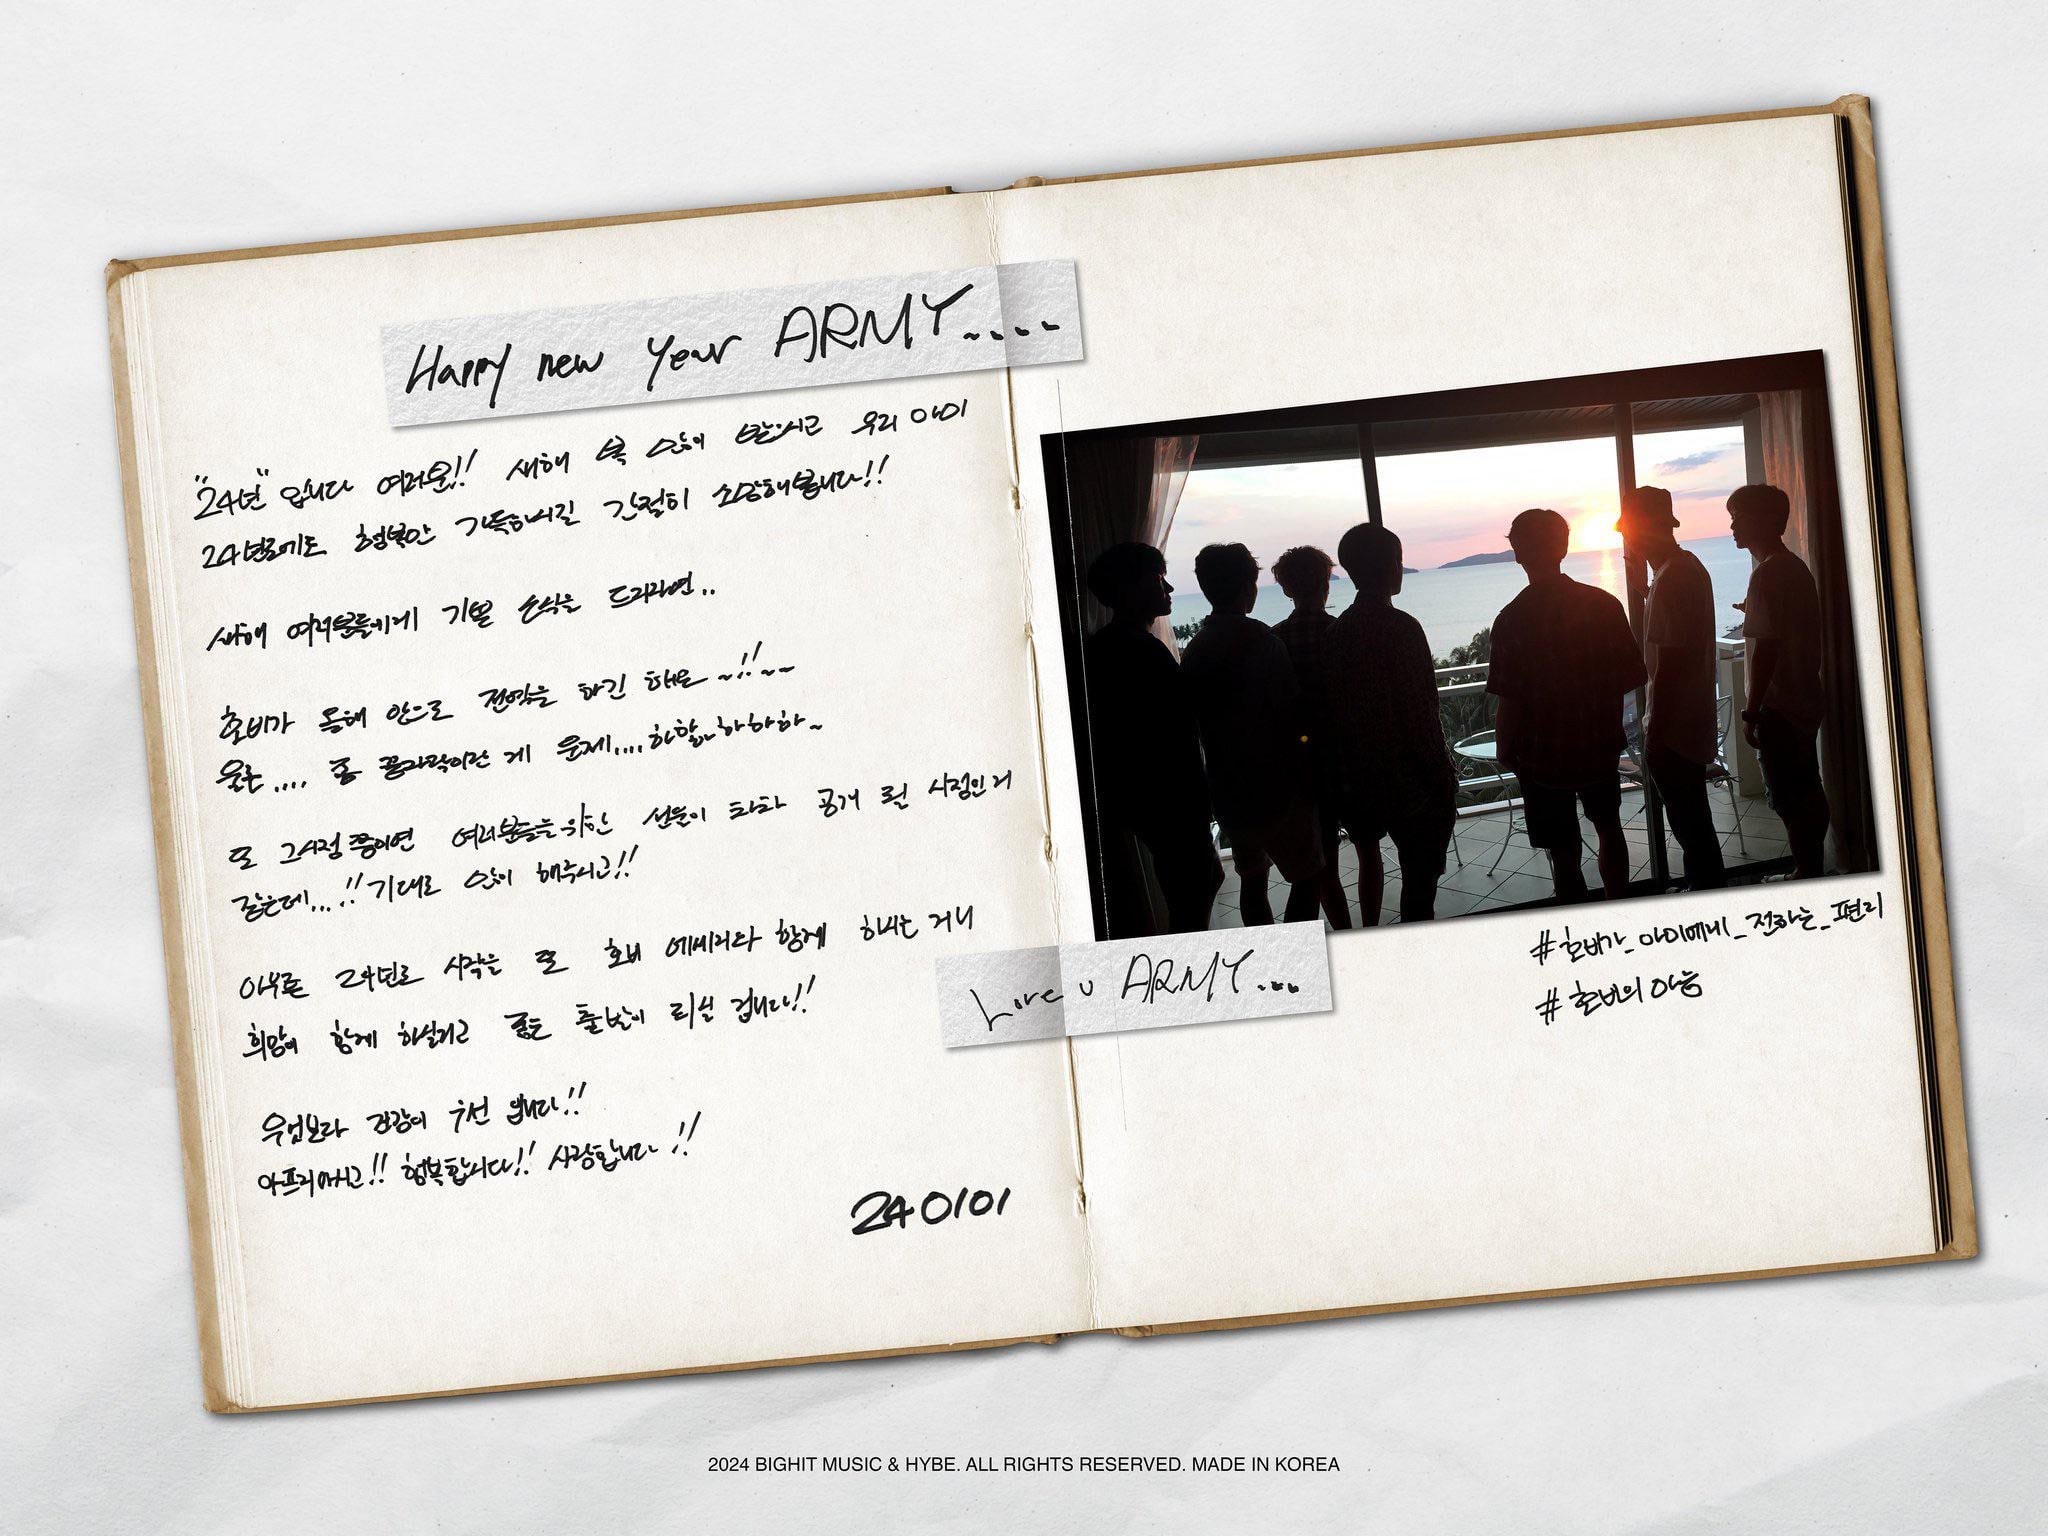 Happy new Year ARMY....
"24년" 입니다 여러분!! 새해 복 많이 받으시고 우리 아미
24년도에도 행복만 가득하시길 간절히 소망해봅니다!!
새해 여러분들에게 기쁜 소식을 드리자면..
호비가 올해 안으로 전역을 하긴 해요~!!~~
물론.... 좀 끝자락이란 게 문제.... 하핳 하하하하~
또 그 시점 쯤이면 여러분들을 위한 선물이 차차 공개 될 시점인 거
같은데...!! 기대도 많이 해주시고!!
아무튼 24년도 시작을 또 호비 에너지와 함께 하시는 거니
희망이 함께 하실거고 좋은 출발이 되실 겁니다!!
무엇보다 건강이 우선 입니다!!
아프지마시고!! 행복합시다!! 사랑합니다!!
240101
Love u ARMY...
#호비가_아미에게_전하는_편지
#호비의마음
2024 BIGHIT MUSIC & HYBE. ALL RIGHTS RESERVED. MADE IN KOREA